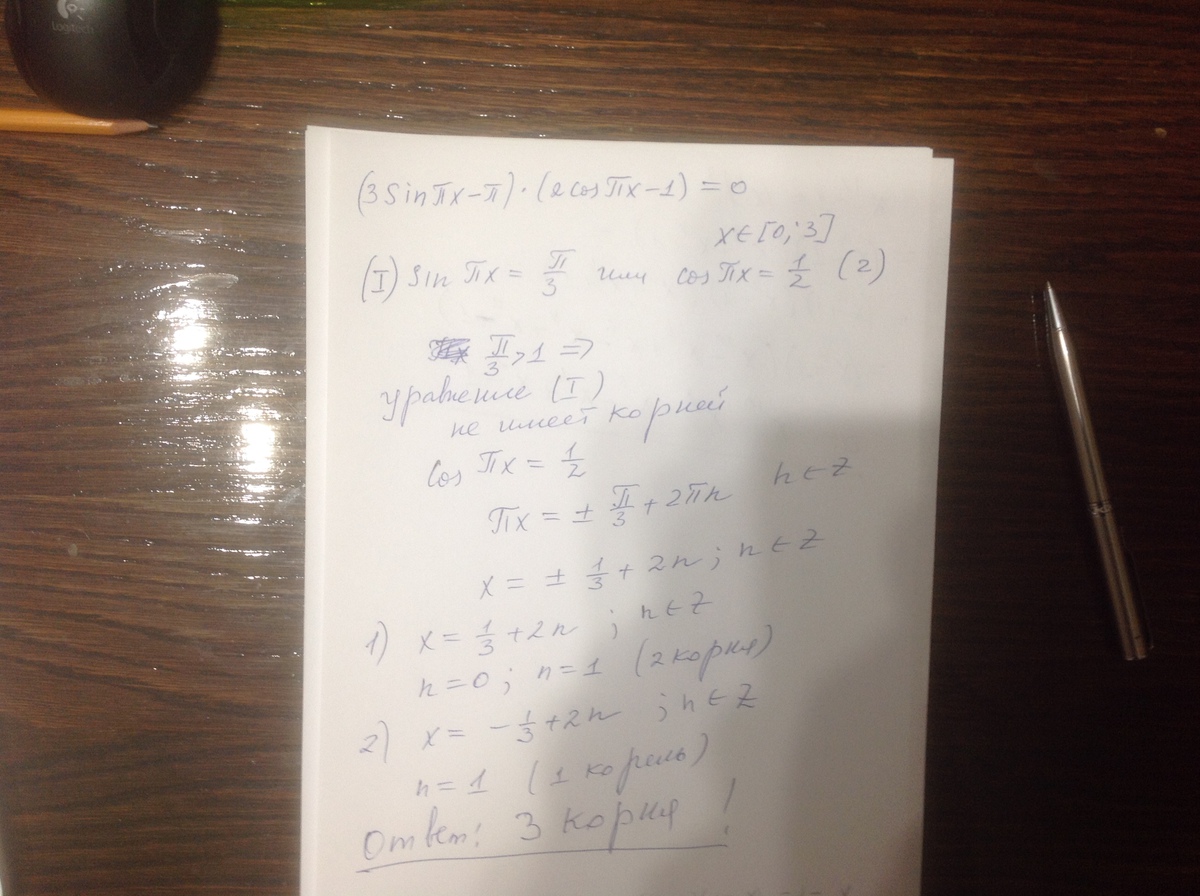 Logitech
(3 Sin πx - π) · (2 cos πx - 1) = 0
x ∈ [0; 3]
(I) Sin πx = π/3 или cos πx = 1/2 (2)
π/3 > 1 =>
уравнение (I)
не имеет корней
Cos πx = 1/2
πx = ± π/3 + 2πn n ∈ Z
x = ± 1/3 + 2n ; n ∈ Z
1) x = 1/3 + 2n ; n ∈ Z
n = 0 ; n = 1 (2 корня)
2) x = - 1/3 + 2n ; n ∈ Z
n = 1 (1 корень)
Ответ: 3 корня !